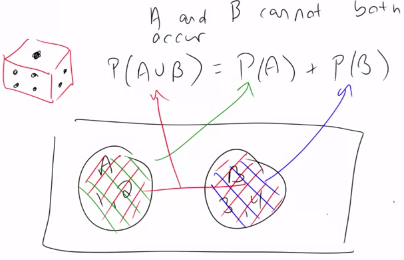 A and B cannot both
occur
P(A∪B) = P(A) + P(B)
A B
1, 2 3, 4